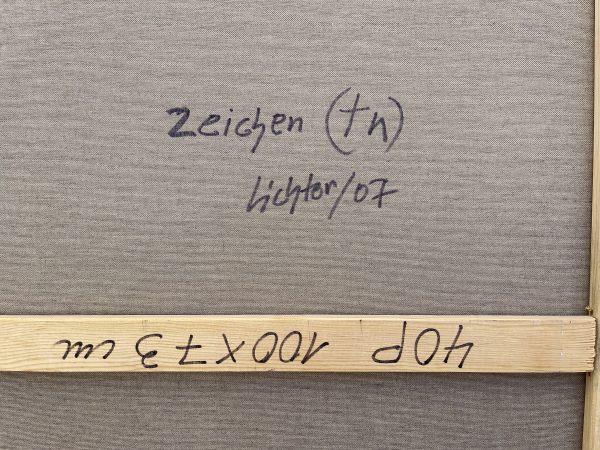 Zeichen (tn)
Lichter/07
40P 100X73 cm